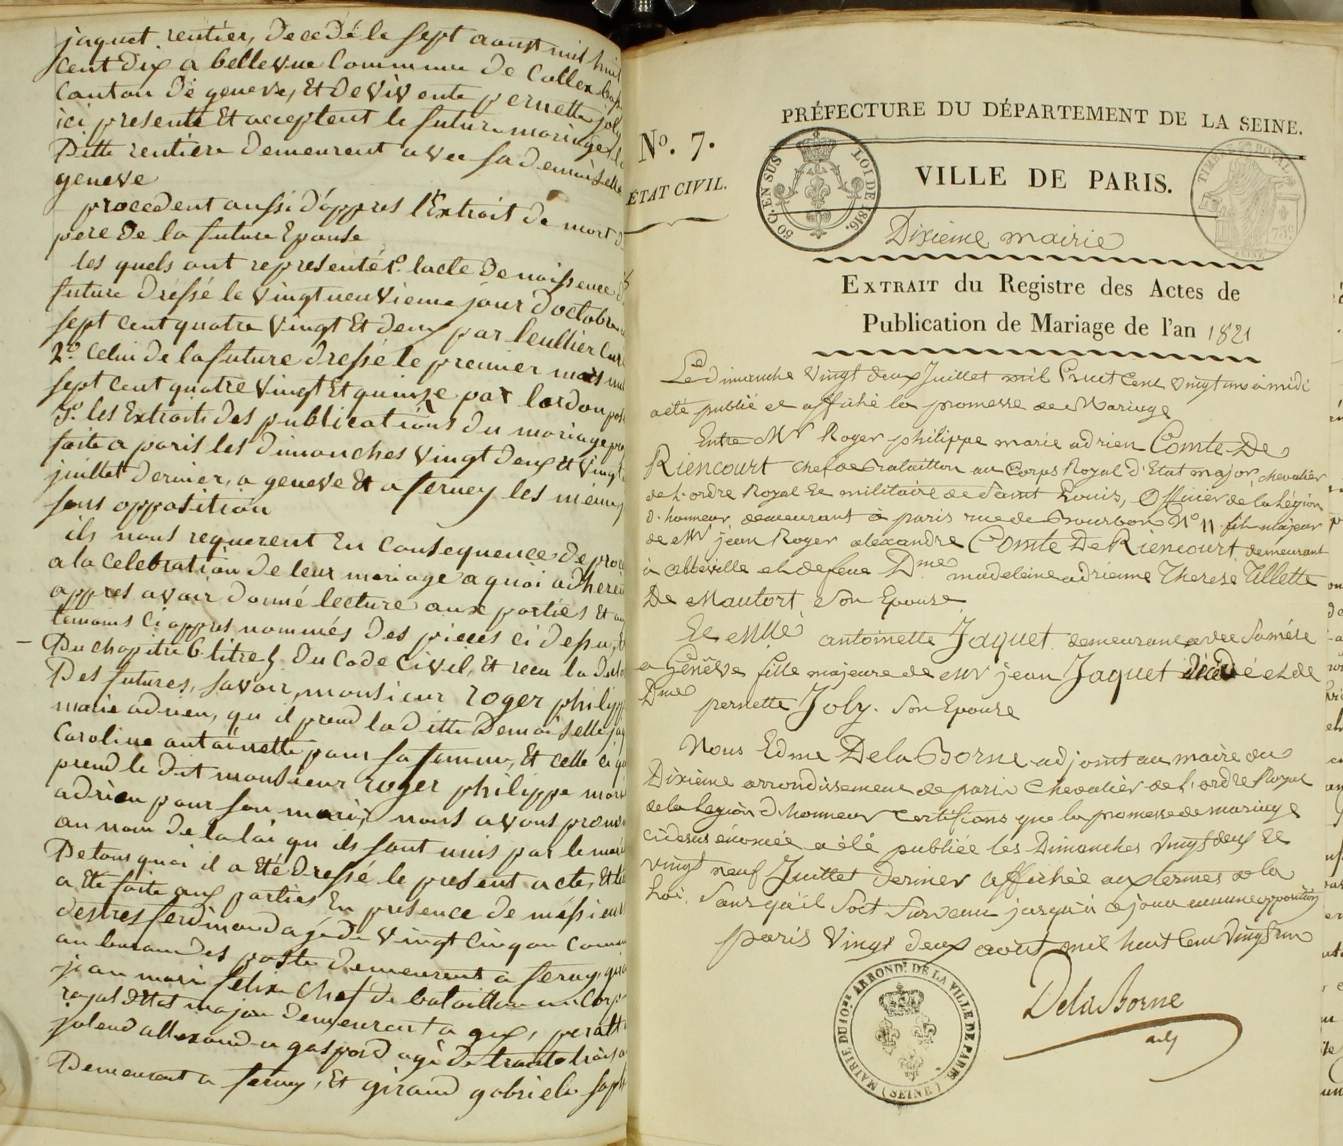 jaquet rentier, decedé le sept aoust mil huit
cent dix a bellevue Commune de Collex
Canton de geneve, Et de vivente pernette joly
ici presente Et acceptent le futur mariage
Ditte rentiere demeurent avec sa demoiselle
geneve
procedent aussi d'appres l'Extrait de mort d
pere de la future Epouse
les quels ont representé 1º. l'acte de naissence d
future dressé le vingtneuvieme jour d'octobre
sept cent quatre vingt Et deux par leullier Curé
2º. Celui de la future dressé le premier mars mil
sept cent quatre vingt Et quinze par
3º. les Extraits des publications du mariage
faite a paris les dimanches vingt deux Et vingt
juillet dernier, a geneve Et a ferney les mêmes
sans opposition
ils nous requerent En Consequence de proc
a la celebration de leur mariage a quoi adherent
appres avoir donné lecture aux parties Et aux
temoins ci appres nommés des pieces ci dessus, Et
Du chapitre 6 titre 5. du Code Civil, Et recu la de
Des futures, savoir, monsieur roger philippe
marie adrien, qu il prend la ditte Demoiselle jaq
Caroline antoinette pour sa femme, Et celle ci qu
prend le dit monsieur roger philippe marie
adrien pour son mari, nous avons prononcé
au nom de la loi qu ils sont unis par le mari
De tout quoi il a Eté dressé le present acte, Et
a Eté faite aux parties En presence de messieurs
destres ferdinand agé de vingt cinq an Comm
au bureau des poste demeurent a ferney,
jean marie felix Chef de bataillon au Corps
royal d'Etat major demeurent a gex,
allexandre gaspard agé de trante trois a
Demeurant a ferney, Et giraud gabriel
PRÉFECTURE DU DÉPARTEMENT DE LA SEINE.
Nº. 7.
ÉTAT CIVIL.
50 C. EN SUS
LOI DE 1816.
TIMBRE ROYAL
SEINE
VILLE DE PARIS.
Dixieme mairie
EXTRAIT du Registre des Actes de
Publication de Mariage de l'an 1821
Le dimanche vingt deux Juillet mil huit cent vingt un à midi
a été publié et affiché la promesse de Mariage
Entre Mr Roger philippe marie adrien Comte De
Riencourt chef de Bataillon au Corps Royal d'Etat major, chevalier
de L'ordre Royal et militaire de Saint Louis, Officier de la Légion
d'honneur, demeurant à paris rue de Bourbon Nº 11. fils majeur
de Mr jean Roger aléxandre Comte De Riencourt demeurant
à abbéville et de feue Dme madeleine adrienne Therese Tillette
De Mautort, Son Epouse
Et Mlle antoinette Jaquet demeurant avec Sa mére
a Genêve fille majeure de Mr jean Jaquet décédé et de
Dme pernette Joly. Son Epouse
Nous Edme Dela Borne adjoint au maire du
Dixième arrondissement de paris Chevalier de L'ordre Royal
de la Legion d'honneur Certifions que la promesse de mariage
cidessus énoncée a été publiée les Dimanches Vingt deux Et
vingt neuf Juillet dernier affichée aux termes de la
Loi. Sans qu'il Soit Survenu jusqu'à ce jour aucune opposition
paris Vingt deux août mil huit Cent Vingt un
Dela Borne
adj
MAIRIE DU 10me ARROND.t DE LA VILLE DE PARIS
(SEINE)